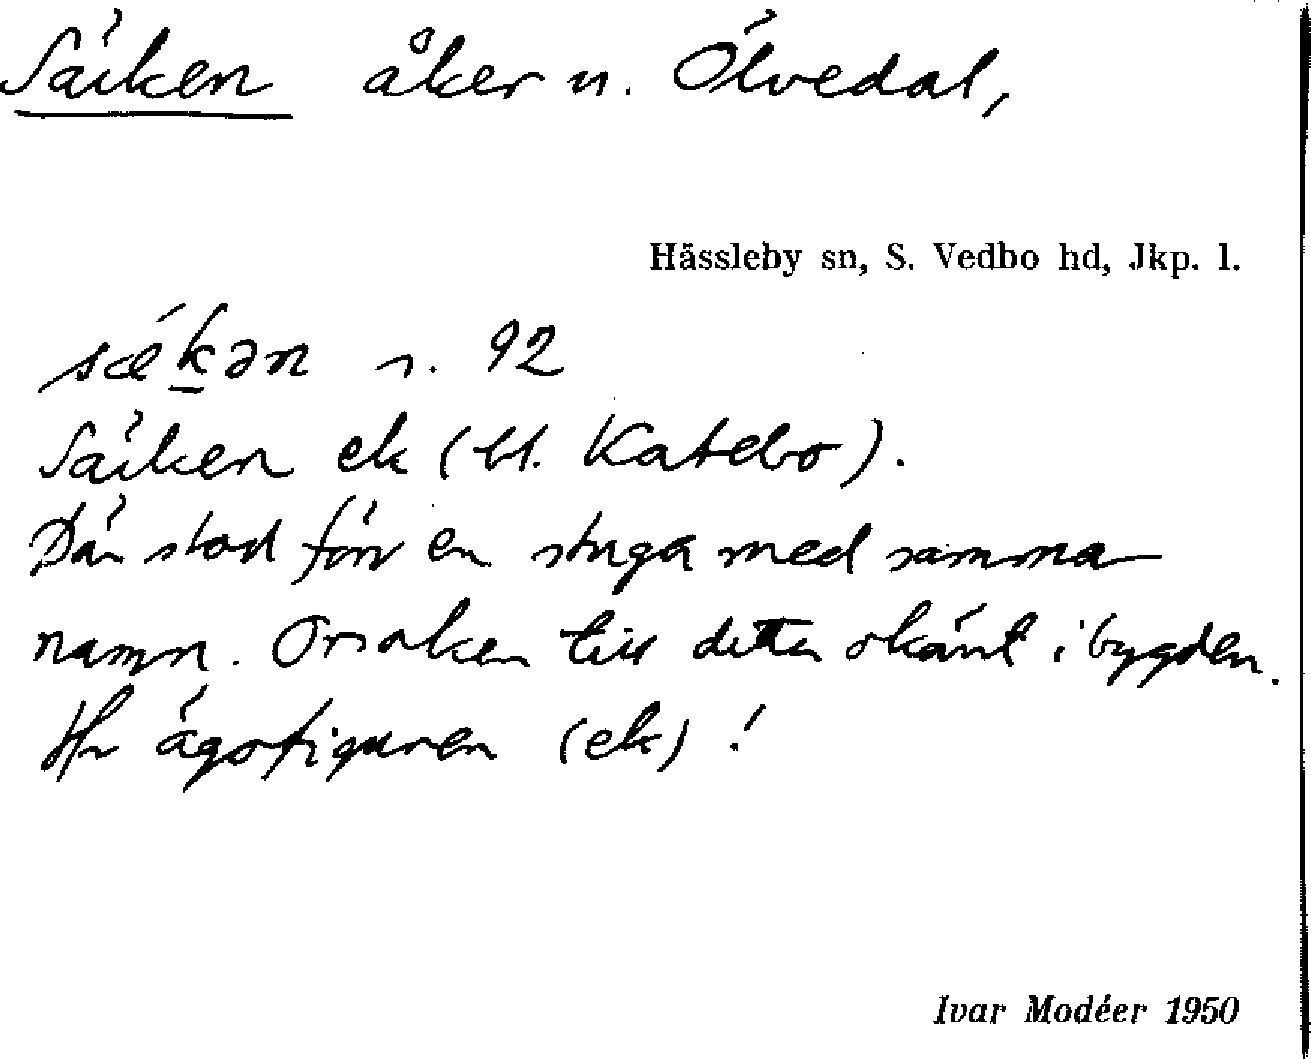 Säcken åker n. Ölvedal,
Hässleby sn, S. Vedbo hd, Jkp. l.
sǽkən n. 92
Säcken ek (bl. Katebo).
Där stod förr en stuga med samma
namn. Orsaken till detta okänt i bygden.
Hr ägofiguren (ek) !
Ivar Modéer 1950